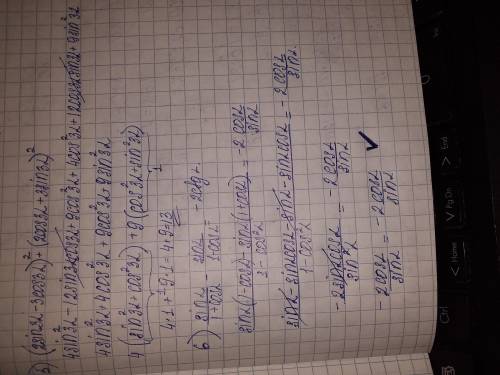 (2sin3α-3cos3α)²+(2cos3α+3sin3α)²
4sin²3α-12sin3αcos3α+9cos²3α+4cos²3α+12cos3αsin3α+9sin²3α
4sin²3α+4cos²3α+9cos²3α+9sin²3α
4(sin²3α+cos²3α)+9(cos²3α+sin²3α)
1
4·1+9·1=4+9=13
6) sinα/1+cosα - sinα/1-cosα = -2ctgα
sinα(1-cosα)-sinα(1+cosα)/1-cos²α = -2cosα/sinα
sinα-sinαcosα-sinα-sinαcosα/1-cos²α = -2cosα/sinα
-2sinαcosα/sin²α = -2cosα/sinα
-2cosα/sinα = -2cosα/sinα
Home
Pg Dn
End
Ctrl